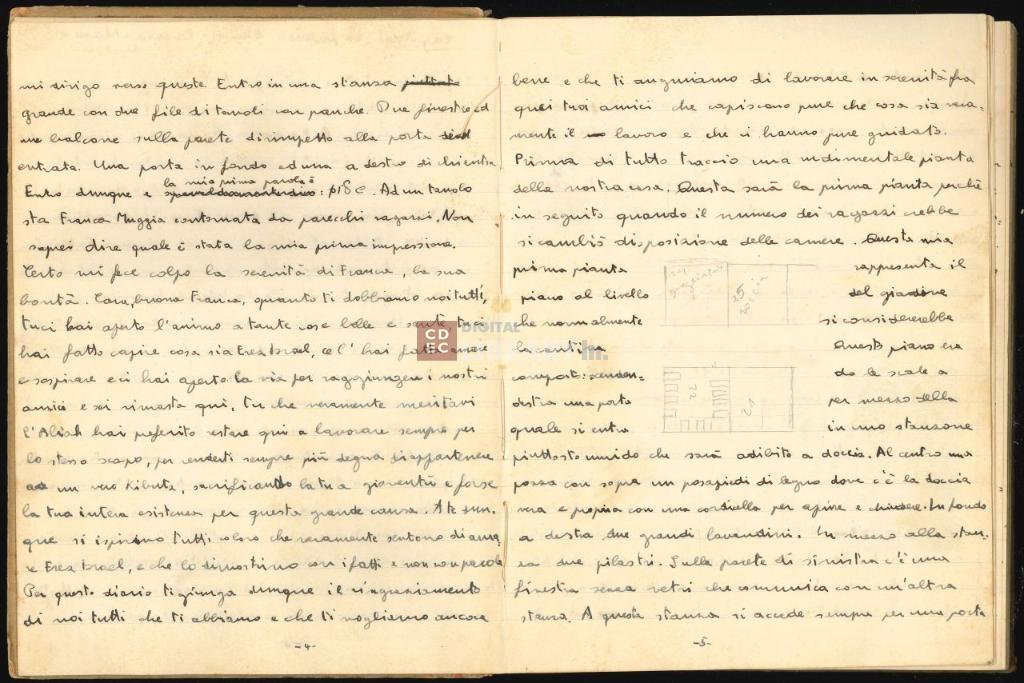 mi dirigo verso queste. Entro in una stanza piuttosto
grande con due file di tavoli con panche. Due finestre ed
un balcone sulla parete dirimpetto alla porta
entrata. Una porta in fondo ed una a destra di chi entra.
la mia prima parola è
Entro dunque e : שלום. Ad un tavolo
sta Franca Muggia contornata da parecchi ragazzi. Non
saprei dire quale è stata la mia prima impressione.
Certo mi fece colpo la serenità di Franca, la sua
bontà. Cara, buona Franca, quanto ti dobbiamo noi tutti,
tu ci hai aperto l'animo a tante cose belle e sante, tu ci
hai fatto capire cosa sia Erez Israel, ce l'hai fatto amare
e sospirare e ci hai aperto la via per raggiungere i nostri
amici e sei rimasta qui, tu che veramente meritavi
l'Aliah hai preferito restare qui a lavorare sempre per
lo stesso scopo, per renderti sempre più degna di appartenere
ad un vero Kibutz, sacrificando la tua gioventù e forse
la tua intera esistenza per questa grande causa. A te dun-
que si ispirino tutti coloro che veramente sentono di ama-
re Erez Israel, e che lo dimostrino con i fatti e non con parole
Per questo diario ti giunga dunque il ringraziamento
di noi tutti che ti abbiamo e che ti vogliamo ancora
-4-
bene e che ti auguriamo di lavorare in serenità fra
quei tuoi amici che capiscono pure che cosa sia vera-
mente il lavoro e che ci hanno pure guidato.
Prima di tutto traccio una rudimentale pianta
della nostra casa. Questa sarà la prima pianta perchè
in seguito quando il numero dei ragazzi crebbe
si cambiò disposizione delle camere. Questa mia
prima pianta rappresenta il
piano al livello del giardino
che normalmente si considererebbe
la cantina Questo piano era
composto: scenden- do le scale a
destra una porta per mezzo della
quale si entra in uno stanzone
piuttosto umido che sarà adibito a doccia. Al centro una
pozza con sopra un posapiedi di legno dove c'è la doccia
vera e propria con una cordicella per aprire e chiudere. In fondo
a destra due grandi lavandini. In mezzo alla stan-
za due pilastri. Sulla parete di sinistra c'è una
finestra senza vetri che comunica con un'altra
stanza. A questa stanza si accede sempre per una porta
25
22
21
-5-
CDEC
DIGITAL